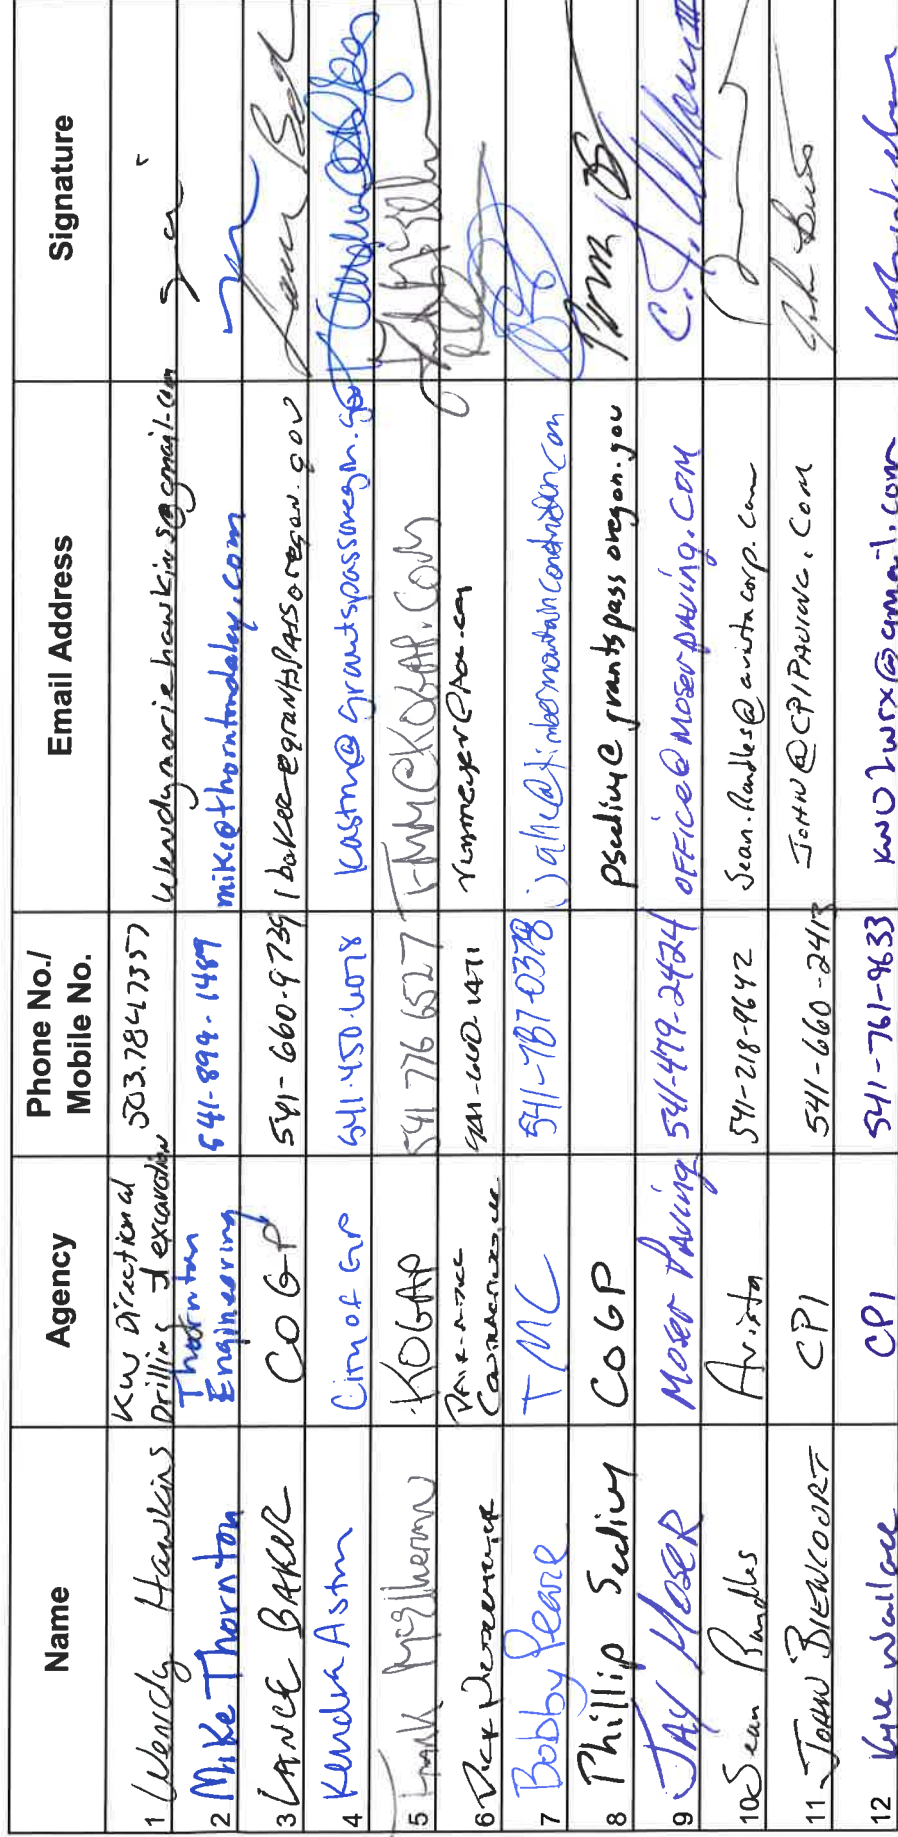 Name Agency Phone No./ Mobile No. Email Address Signature
1 Wendy Hawkins KW Directional Drilling & excavation 503.784.7357 wendymariehawkins@gmail.com
2 Mike Thornton Thornton Engineering 541-899-1489 mike@thorntondaley.com
3 LANCE BAKER COGP 541-660-9739 lbaker@grantspassoregon.gov
4 Kendra Astm City of GP 541.450.6078 kastm@grantspassoregon.gov
5 Frank KOGAP 541 776 6527
6 541-660-1471
7 Bobby TMC 541-787-0378
8 Phillip Sedivy COGP psedivy@grantspassoregon.gov
9 JAY MOSER MOSER PAVING 541-479-2424 OFFICE@MOSER-PAVING.COM
10 Sean Randles Avista 541-218-9642 Sean.Randles@avistacorp.com
11 JOHN BIENCOURT CPI 541-660-2413 JOHN@CPIPAVING.COM
12 Kyle Wallace CPI 541-761-9633 KWO2wrx@gmail.com